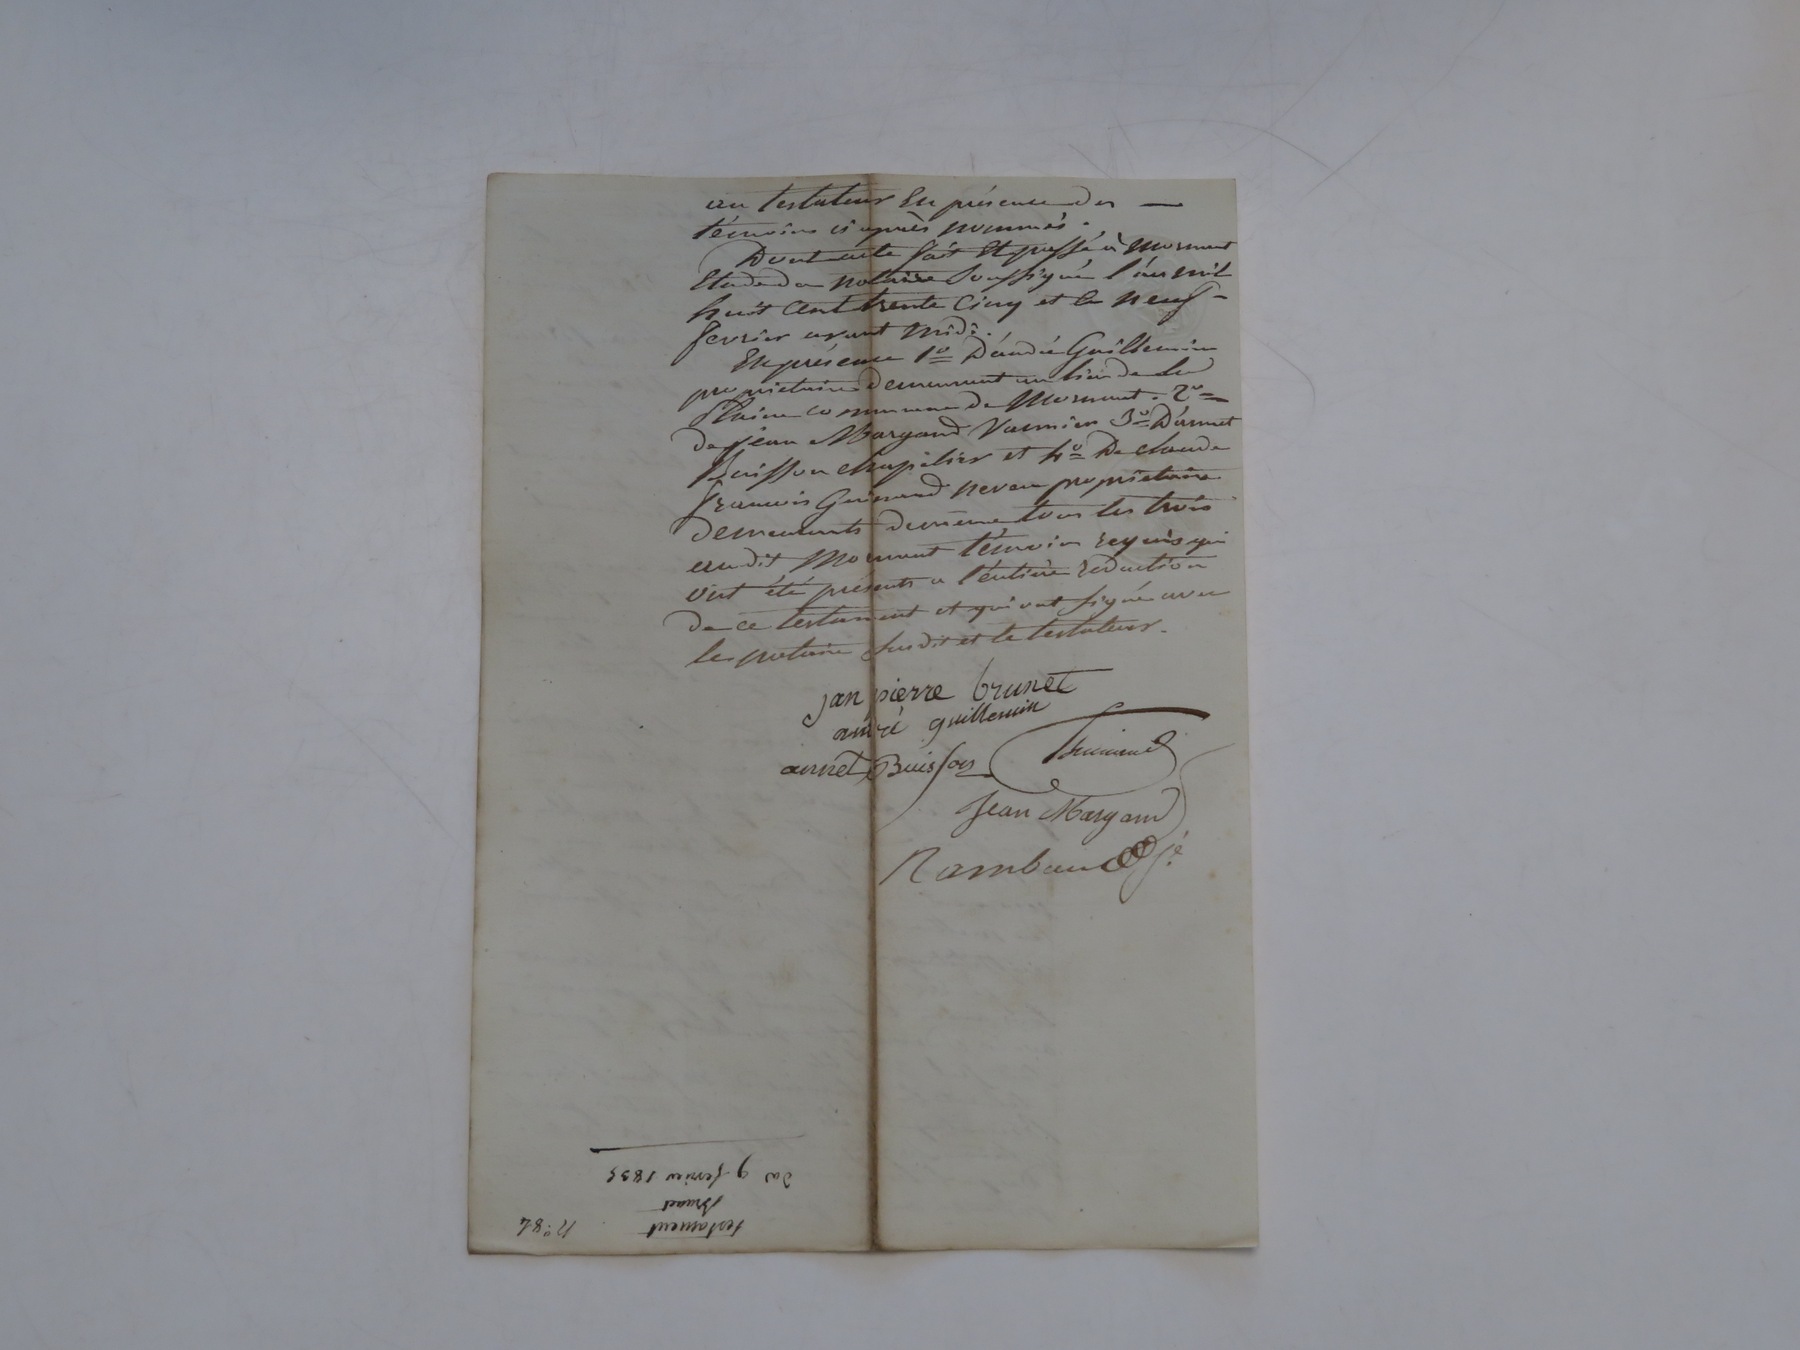 au testateur En présence des —
témoins ci après nommés.
Dont acte fait Et passé à Mornant
Etude du notaire soussigné l'an mil
huit cent trente cinq et le neuf
fevrier avant midi.
En présence 1º D'andré Guillemin
propriétaire demeurant au lieu de La
Plaine commune de Mornant. 2º
de Jean Margand 3º D'annet
Buisson chapelier et 4º De claude
François Guinand neveu propriétaire
demeurants tous les trois
audit Mornant témoins requis qui
ont été présents a l'entière rédaction
de ce testament et qui ont signé avec
le notaire susdit et le testateur.
jan pierre brunet
andré guillemin
annet Buisson Guinand
Jean Margand
Rambaud
testament
Brunet
du 9 fevrier 1835
nº 82